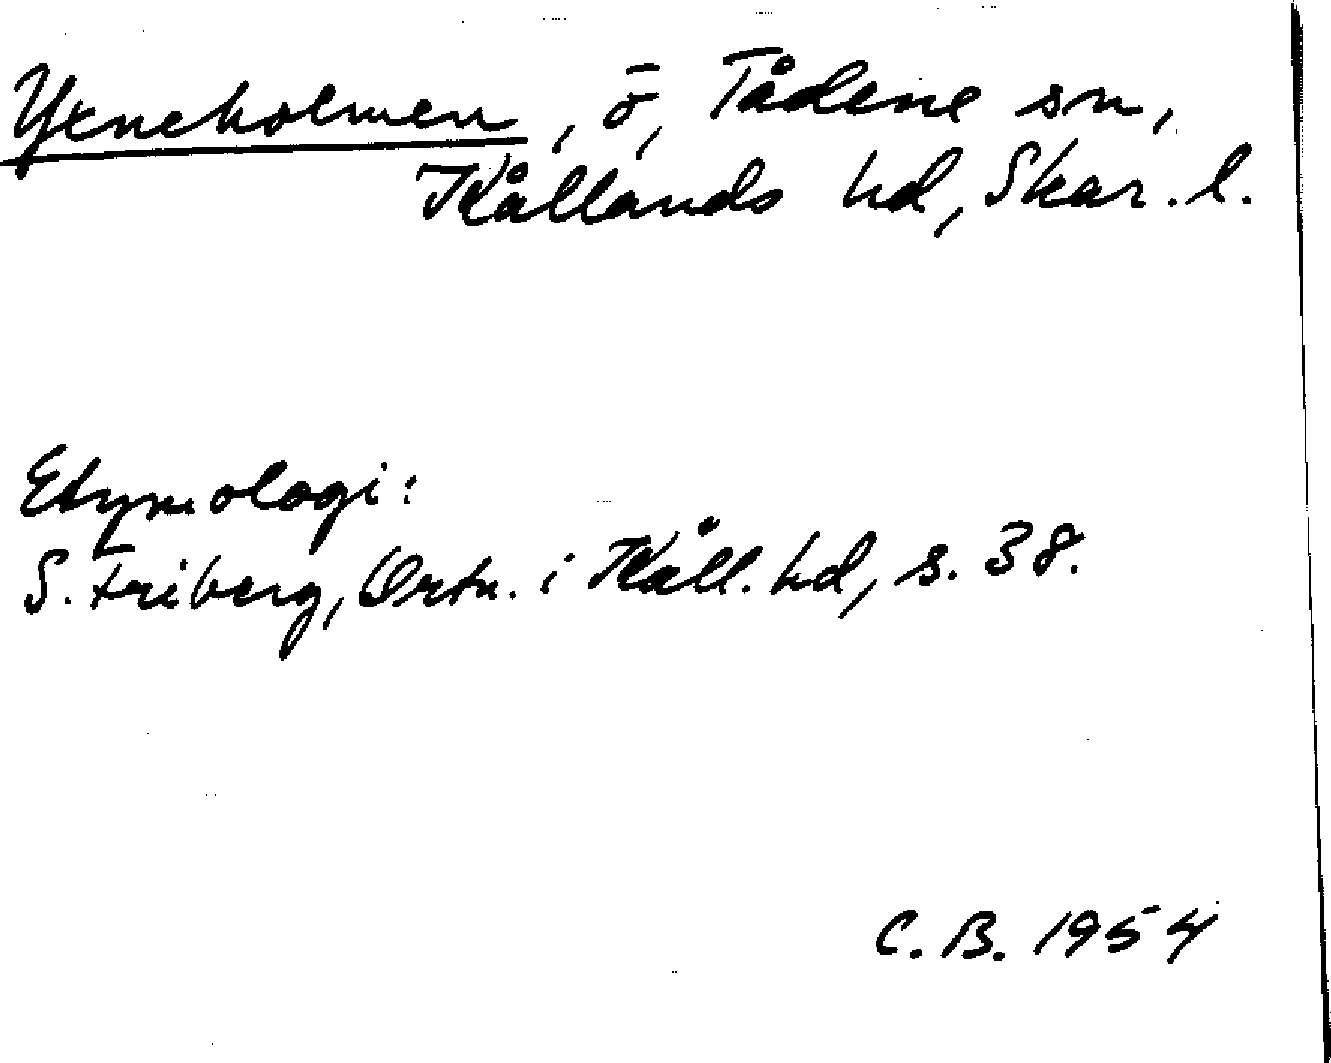 Yxneholmen, ö, Tådene sn,
Kållands hd, Skar. l.
Etymologi:
S. Friberg, Ortn. i Kåll. hd, s. 38.
C. B. 1954